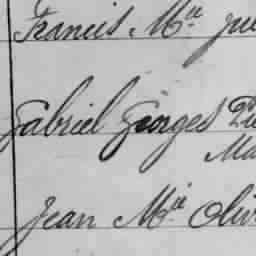 Francis Mie
Gabriel Georges
Ma
Jean Mie Oliv